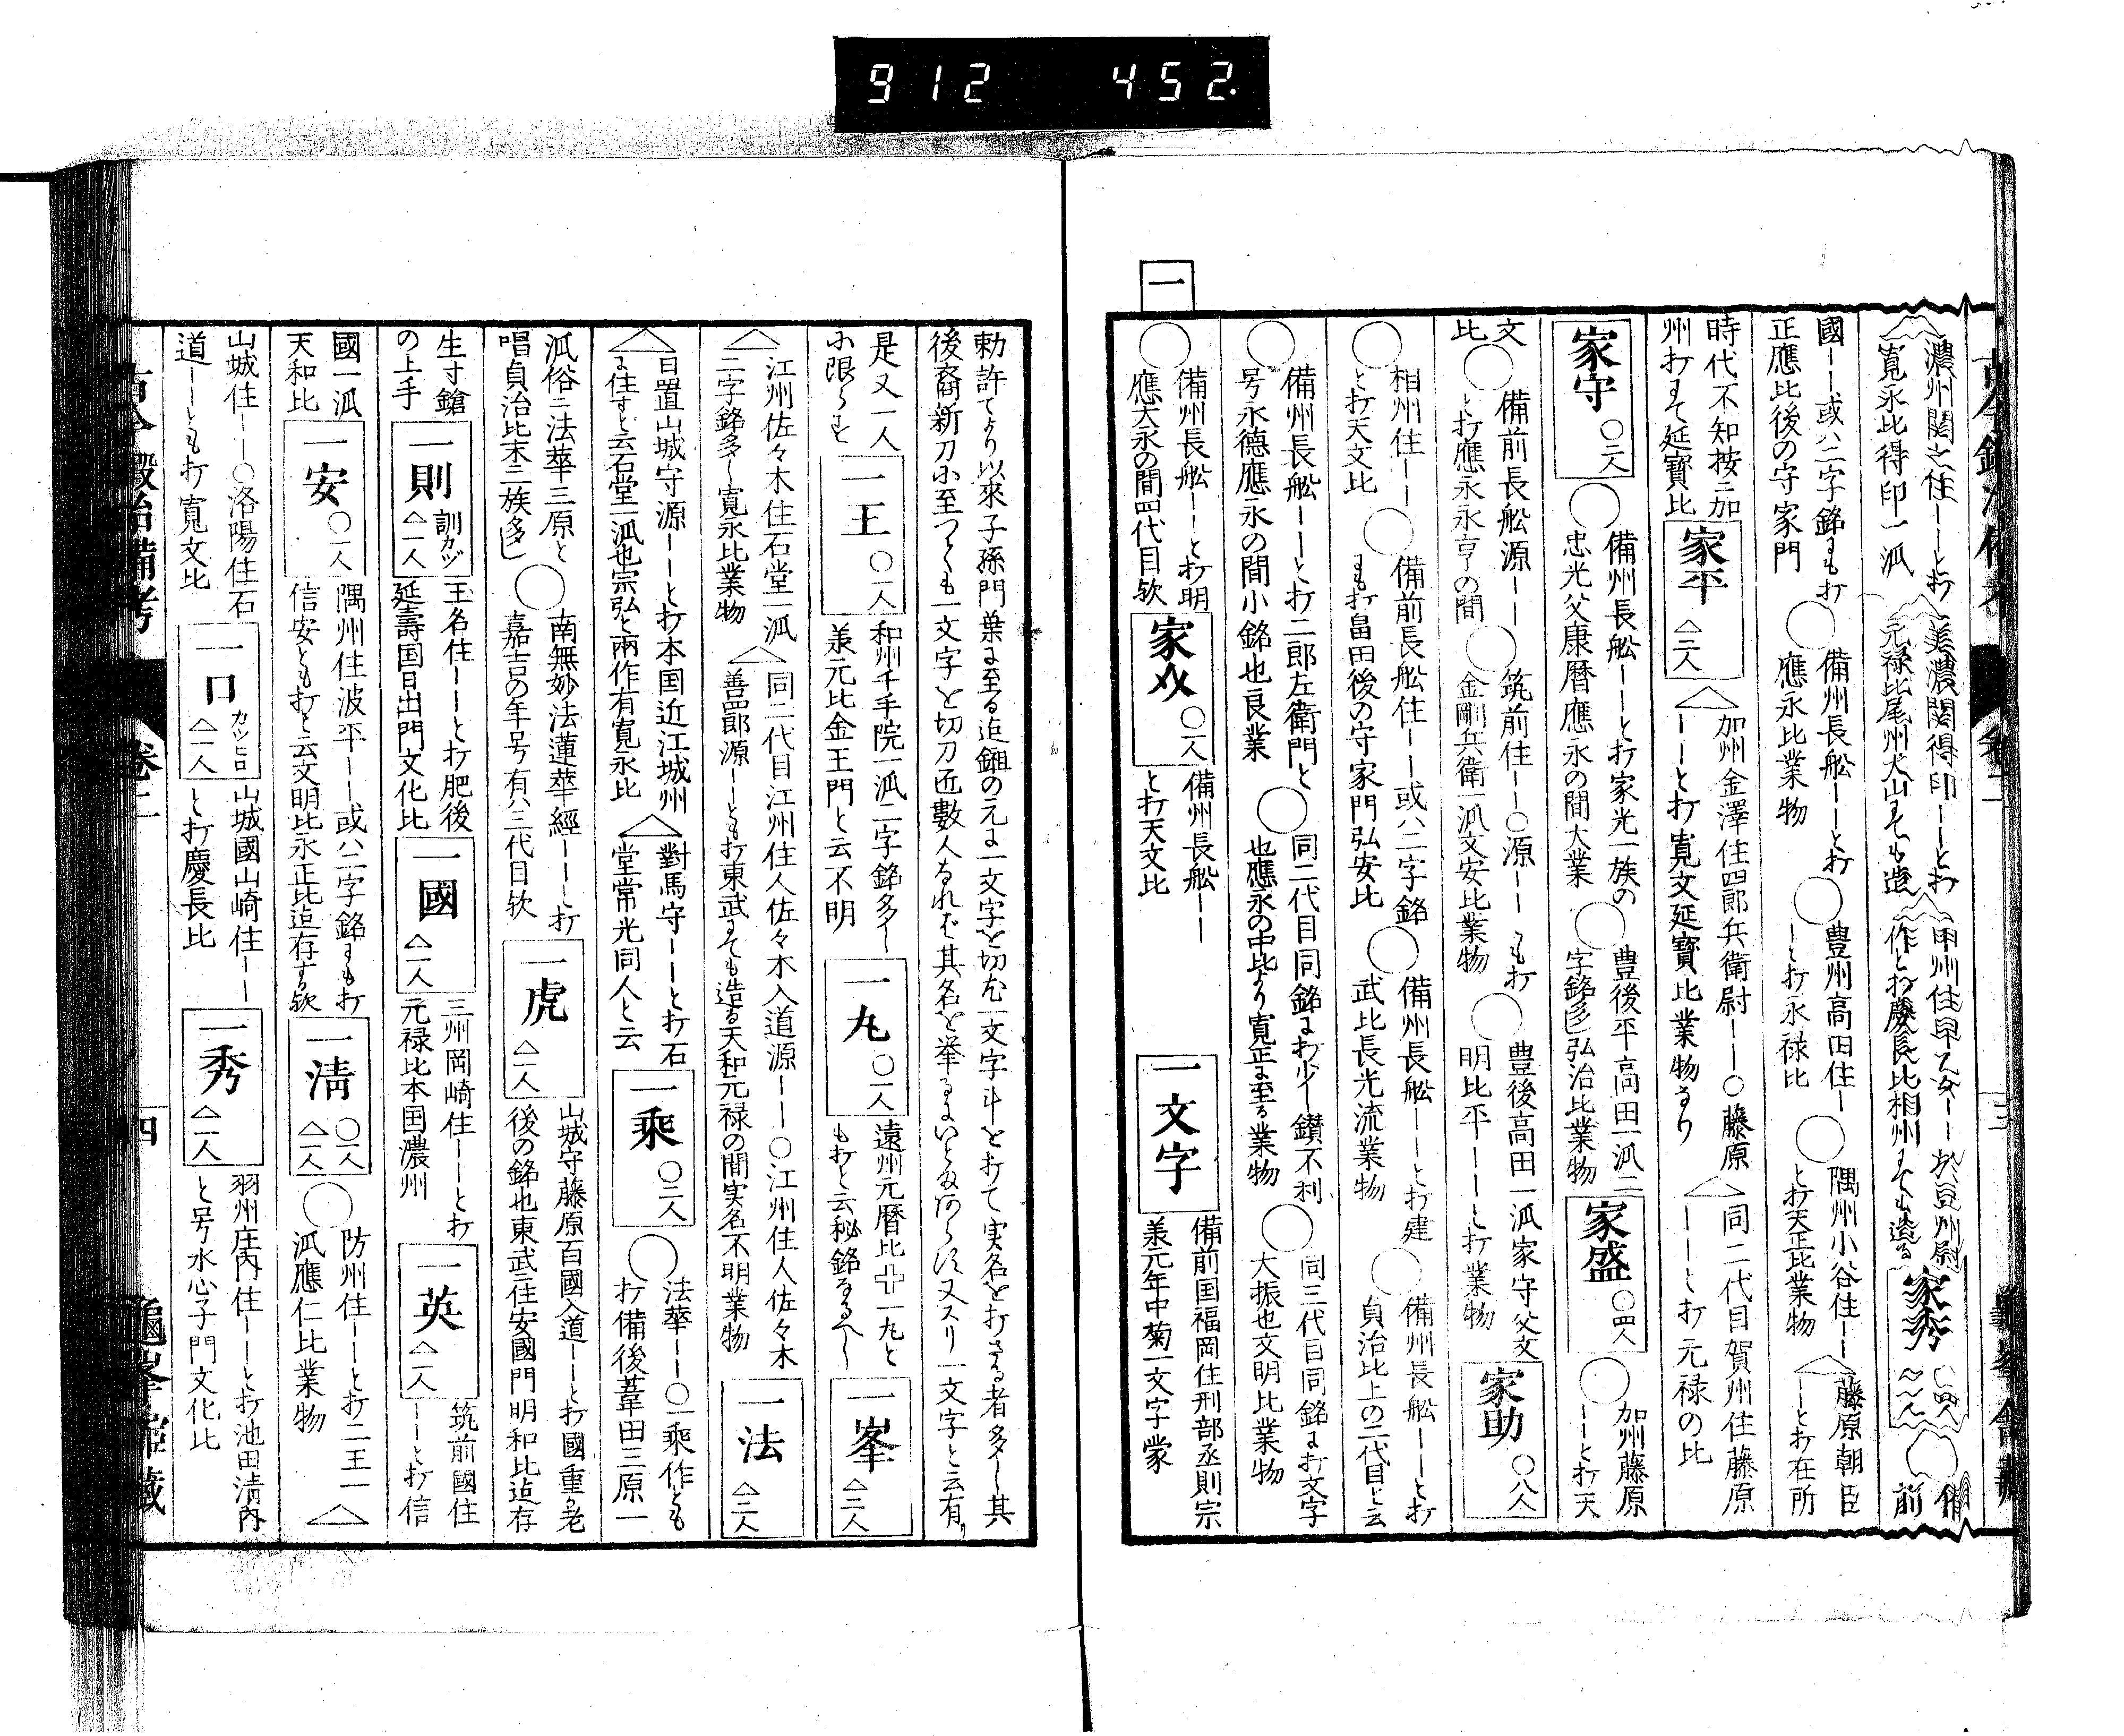 912 452.
濃州関之住ーーと打
寛永比得印一派
美濃関得印ーーと打
元禄比尾州犬山にても造
作と打慶長比相州にても造る
家秀
備
前
國ーー或ハ二字銘にも打
正應比後の守家門
備州長舩ーーと打
應永比業物
豊州高田住ー
ーと打永禄比
隅州小谷住ーー
と打天正比業物
藤原朝臣
ーと打在所
時代不知按ニ加
州打にて延寶比
家平 △二人
加州金澤住四郎兵衛尉ーー○藤原
ーーと打寛文延寶比業物なり
同二代目賀州住藤原
ーーと打元禄の比
家守 ○二人
備州長舩ーーと打家光一族の
忠光父康暦應永の間大業
豊後平高田一派二
字銘多し弘治比業物
家盛 ○四人
加州藤原
ーーと打天
文
比
備前長舩源ーー
と打應永永亨の間
筑前住ーー○源ーーも打
金剛兵衛一派文安比業物
豊後高田一派家守父文
明比平ーーーと打業物
家助 ○八人
相州住ーー
と打天文比
備前長舩住ーー或ハ二字銘
にも打畠田後の守家門弘安比
備州長舩ーーと打建
武比長光流業物
備州長舩ーーと打
貞治比上の二代目と云
備州長舩ーーと打二郎左衛門と
号永德應永の間小銘也良業
同二代目同銘に打少し鑚不利
也應永の中比より寛正に至る業物
同三代目同銘に打文字
大振也文明比業物
一
備州長舩ーーと打明
應大永の間四代目欤
家〆 ○一人
備州長舩ーー
と打天文比
一文字
備前国福岡住刑部丞則宗
羕元年中菊一文字蒙
勅許てより以來子孫門葉に至る迄鎺の元に一文字と切尤一文字斗と打て実名を打さる者多し其
後裔新刀に至つても一文字と切刀匠數人あれど其名を挙るに
又スリ一文字と云有り
是又一人
に限らす
一王 ○一人
和州千手院一派二字銘多し
羕元比金王門と云不明
一丸 ○一人
遠州元暦比 一丸と
も打と云秘銘なるへし
一峯 △二人
江州佐々木住石堂一派
二字銘多し寛永比業物
同二代目江州住人佐々木入道源ーー○江州住人佐々木
善四郎源ーーとも打東武にても造る天和元禄の間実名不明業物
一法 △二人
日置山城守源ーーと打本国近江城州
に住すと云石堂一派也宗弘と兩作有寛永比
對馬守ーーと打石
堂常光同人と云
一乘 ○二人
法華ーー○一乘作とも
打備後葦田三原一
派俗ニ法華三原と
唱貞治比末ニ族多し
南無妙法蓮華經ーーと打
嘉吉の年号有ハ二代目欤
一虎 △一人
山城守藤原百國入道ーーと打國重
後の銘也東武ニ住安國門明和比迄存
生寸鎗
の上手
一則 訓カヅ △一人
玉名住ーーと打肥後
延壽国日出門文化比
一國 △一人
三州岡崎住ーーと打
元禄比本国濃州
一英 △一人
筑前國住
ーーと打信
國一派
天和比
一安 ○一人
隅州住波平ーー或ハ二字銘にも打
信安とも打と云文明比永正比迄存する欤
一清 ○一人 △一人
防州住ーーと打二王一
派應仁比業物
山城住ーー○洛陽住石
道ーーとも打寛文比
一口 カツヒロ △一人
山城國山崎住ーー
と打慶長比
一秀 △一人
羽州庄内住ーーと打池田清内
と号水心子門文化比
古今鍛冶備考 卷二 四